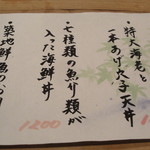 ・特大海老と
一本あげ穴子天丼
・七種類の魚介類が
入った海鮮丼
1200
・築地鮮魚の